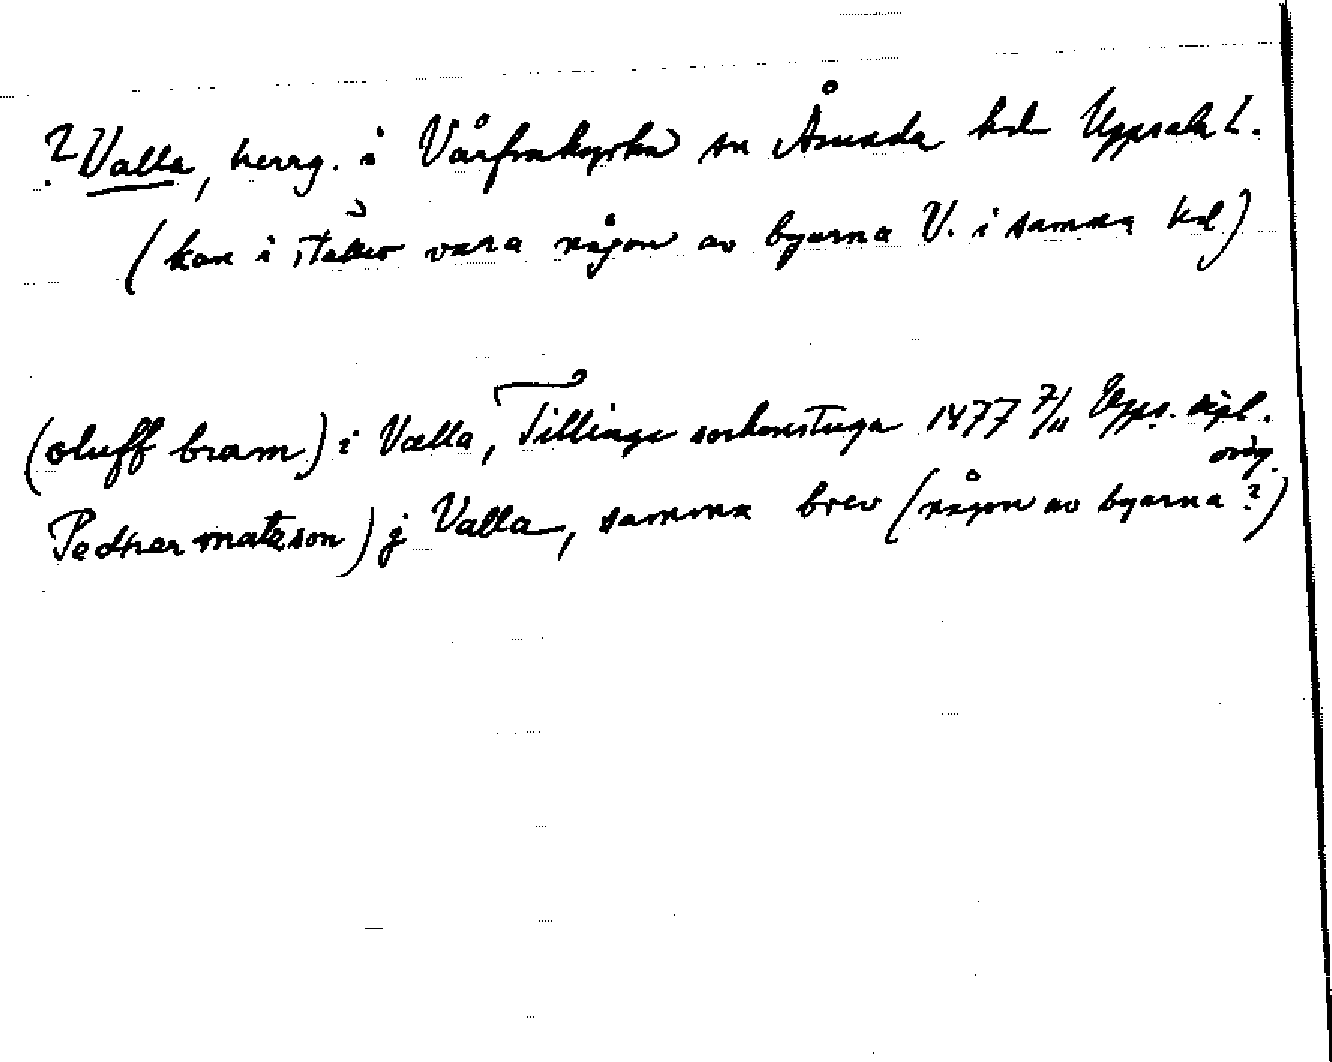 ? Valla, herrg. i Vårfrukyrka sn Åsunda hd Uppsala l.
(kan i stället vara någon av byarna V. i samma hd)
(oluff bram) i Valla, Tillinge sockenstuga 1477 7/11 Upps. dipl.
orig.
Pedher matsson) j Valla, samma brev (någon av byarna?)